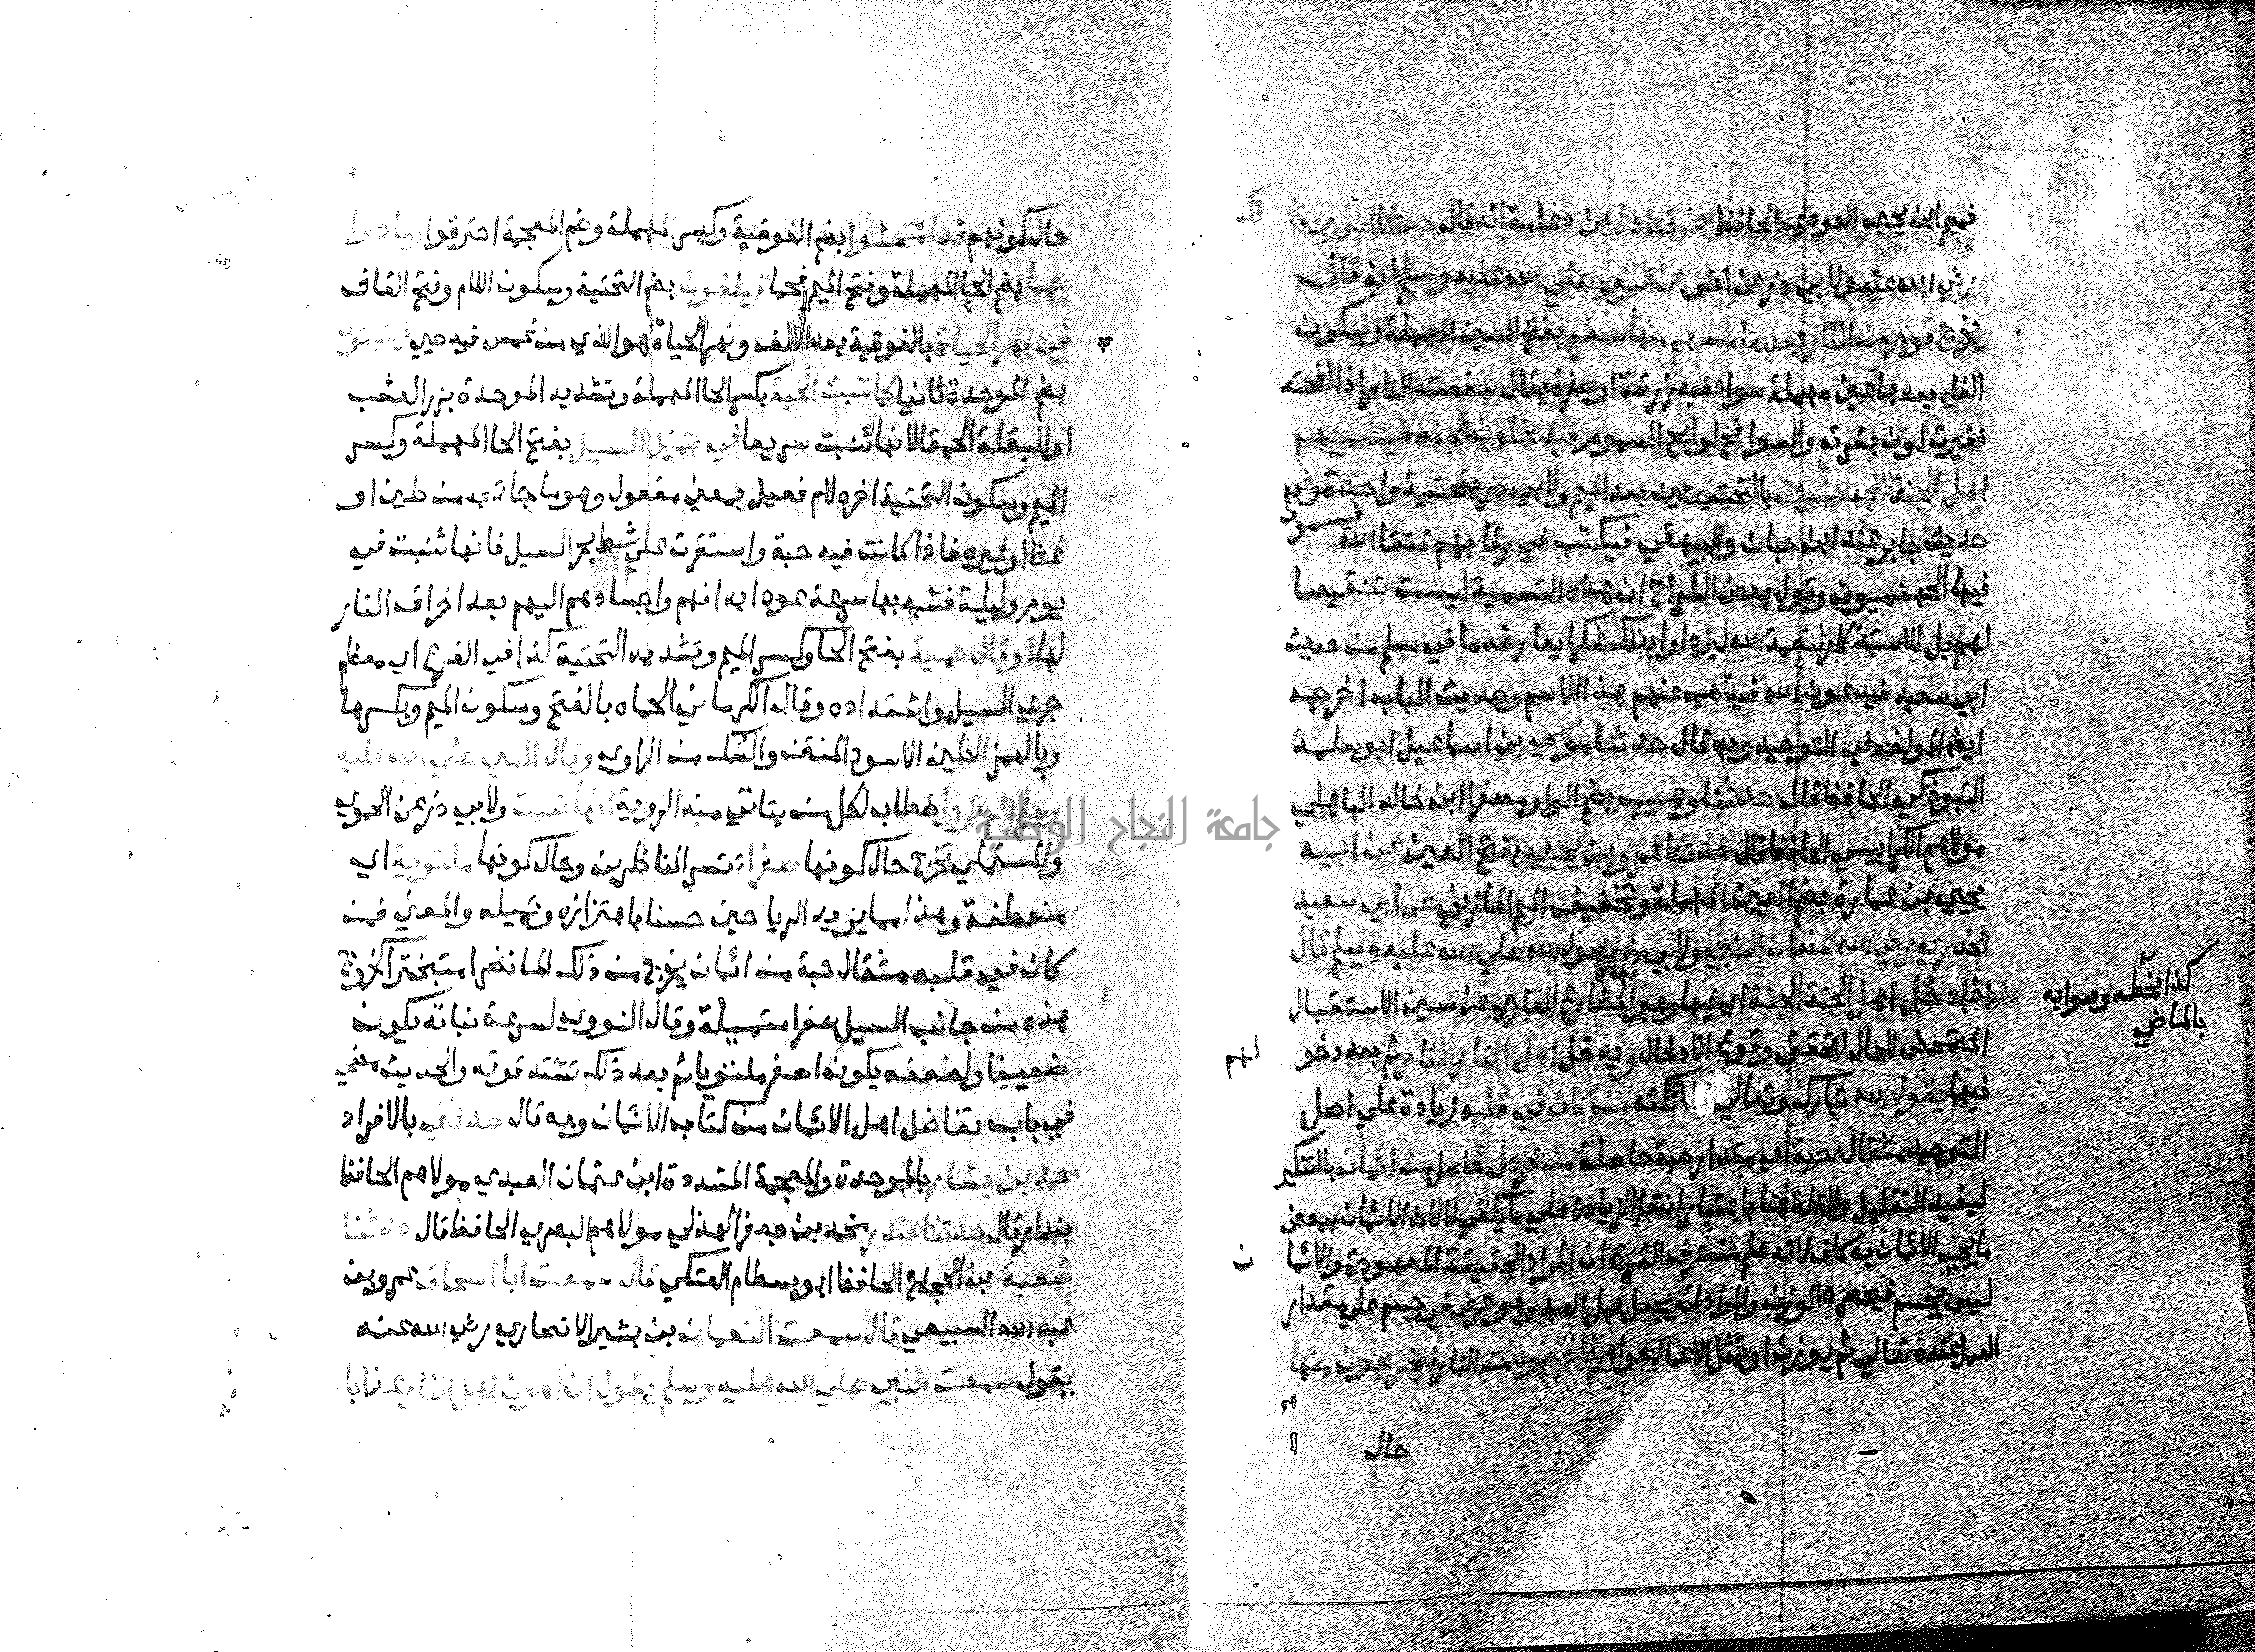 فميم ابن يحيى العوذي الحافظ عن قتادة بن دعامة انه قال حدثنا انس بن ما لك
رضي الله عنه ولابي ذر عن انس عن النبي صلي الله عليه وسلم انه قال
يخرج قوم من النار بعد ما مسهم منها سفع بفتح السين المهملة وسكون
الفاء بعدها عين مهملة سواد فيه زرقة او صفرة يقال سفعته النار اذا لفحته
فغيرت لون بشرته والسوافع لوافح السموم فيدخلون الجنة فيسميهم
اهل الجنة الجهنميين بالتحتيتين بعد الميم ولابي ذر بتحتية واحدة وفي
حديث جابر عند ابن حبان والبيهقي فيكتب في رقابهم عتقا الله فيسمون
فيها الجهنميون وقول بعض الشراح ان هذه التسمية ليست تنقيصا
لهم بل للاستذكار لنعمة الله ليزدادوا بذلك شكرا يعارضه ما في مسلم من حديث
ابي سعيد فيدعون الله فيذهب عنهم هذا الاسم وحديث الباب اخرجه
ايضا المولف في التوحيد وبه قال حدثنا موسي بن اسماعيل ابو سلمة
التبوذكي الحافظ قال حدثنا وهيب بضم الواو مصغرا ابن خالد الباهلي
مولاهم الكرابيسي الحافظ قال حدثنا عمرو بن يحيي بفتح العين عن ابيه
يحيي بن عمارة بضم العين المهملة وتخفيف الميم المازني عن ابي سعيد
الخدري رضي الله عنه ان النبي ولابي ذر رسول الله صلي الله عليه وسلم قال
اذا دخل اهل الجنة الجنة اي فيها وعبر المضارع العاري عن سين الاستقبال
كذا بخطه وصوابه
بالماضي
المتمحض للحال لتحقق وقوع الادخال ويدخل اهل النار النار ثم بعد دخو لهم
فيها يقول الله تبارك وتعالي لملائكته من كان في قلبه زيادة علي اصل
التوحيد مثقال حبة اي مقدار حبة حاصلة من خردل حاصل من ائمان بالتنكير
ليفيد التقليل والقلة هنا باعتبار انتفا الزيادة علي ما يكفي لا لان الائمان ببعض
ما يجب الائمان به كاف لانه علم من عرف الشرع ان المراد الحقيقة المعهودة والائما ن
ليس بجسم فيحصره الوزن والمراد انه يجعل عمل العبد وهو عرض في جسم علي مقدار
العمل عنده تعالي ثم يوزن او تمثل الاعمال جواهر فاخرجوه من النار فيخرجون منها
حال
حال كونهم قد امتحشوا بضم الفوقية وكسر المهملة وضم المعجمة احترقوا وعادوا
حمما بضم الحا المهملة وفتح الميم فحما فيلقون بضم التحتية وسكون اللام وفتح القاف
في نهر الحياة بالفوقية بعد الالف ونهر الحياة هو الذي من غمس فيه حيي فينبتون
بضم الموحدة ثانيا كما تنبت الحبة بكسر الحا المهملة وتشديد الموحدة بزر العشب
او البقلة الحمقا لانها تنبت سريعا في حميل السيل بفتح الحا المهملة وكسر
الميم وسكون التحتية اخره لام فعيل بمعني مفعول وهو ما جا به من طين او
غثا او غيره فاذا كانت فيه حبة واستقرت علي شط بحر السيل فانها تنبت في
يوم وليلة فشبه بها سرعة عود ابدانهم واجسادهم اليهم بعد احراق النار
لها او قال حمية بفتح الحا وكسر الميم وتشديد التحتية كذا في الفرع اي معظم
جري السيل واشتداده وقال الكرماني الحماه بالفتح وسكون الميم وبكسرها
وبالهمز الطين الاسود المنتن والشك من الراوي وقال النبي صلي الله عليه
وسلم الم تروا خطاب لكل من يتاتي منه الروية انها تنبت ولابي ذر عن الحموي
والمستملي تخرج حال كونها صفراء تسر الناظرين وحال كونها ملتوية اي
منعطفة وهذا مما يزيد الرياحين حسنا باهتزازه وتميله والمعني فمن
كان في قلبه مثقال حبة من ائمان يخرج من ذلك الما نضرا متبخترا كخروج
هذه من جانب السيل صفرا متميلة وقال النووي لسرعة نباته يكون
ضعيفا ولضعفه يكون اصفر ملتويا ثم بعد ذلك تشتد قوته والحديث مضي
في باب تفاضل اهل الائمان من كتاب الائمان وبه قال حدثني بالافراد
محمد بن بشار بالموحدة والمعجمة المشددة ابن عثمان العبدي مولاهم الحافظ
بندار قال حدثنا غندر محمد بن جعفر الهذلي مولاهم البصري الحافظ قال حدثنا
شعبة بن الحجاج الحافظ ابو بسطام العتكي قال سمعت ابا اسحاق عمرو بن
عبد الله السبيعي قال سمعت النعمان بن بشير الانصاري رضي الله عنه
يقول سمعت النبي صلي الله عليه وسلم يقول ان اهون اهل النار عذابا
جامعة النجاح الوطنية